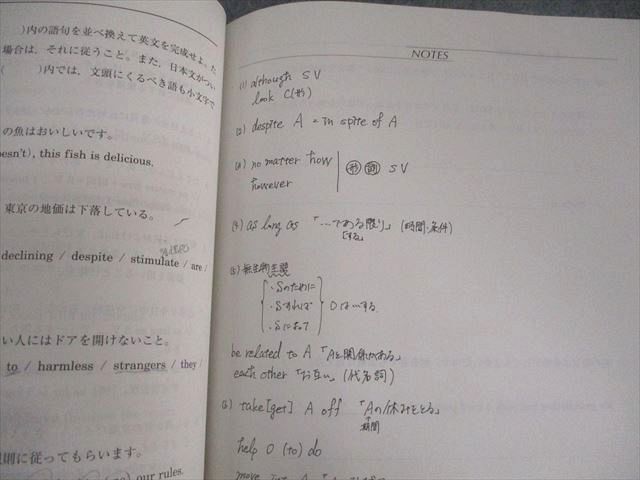 )内の語句を並べ換えて英文を完成せよ.た
場合は, それに従うこと. また, 日本文がつい
( )内では, 文頭にくるべき語も小文字で
の魚はおいしいです。
esn't), this fish is delicious.
東京の地価は下落している。
declining / despite / stimulate / are /
い人にはドアを開けないこと。
to / harmless / strangers / they /
規則に従ってもらいます。
our rules.
NOTES
(1) although SV
look C(形)
(2) despite A = in spite of A
(3) no matter how
however
形 副 SV
(4) as long as 「…である限り」 (時間, 条件)
する
(5) 無生物主語
・Sのために
・Sすれば
・Sによって
Oは…する
be related to A 「Aと関係がある」
each other 「お互い」 (代名詞)
(6) take[get] A off 「Aの休みをとる」
期間
help O (to) do